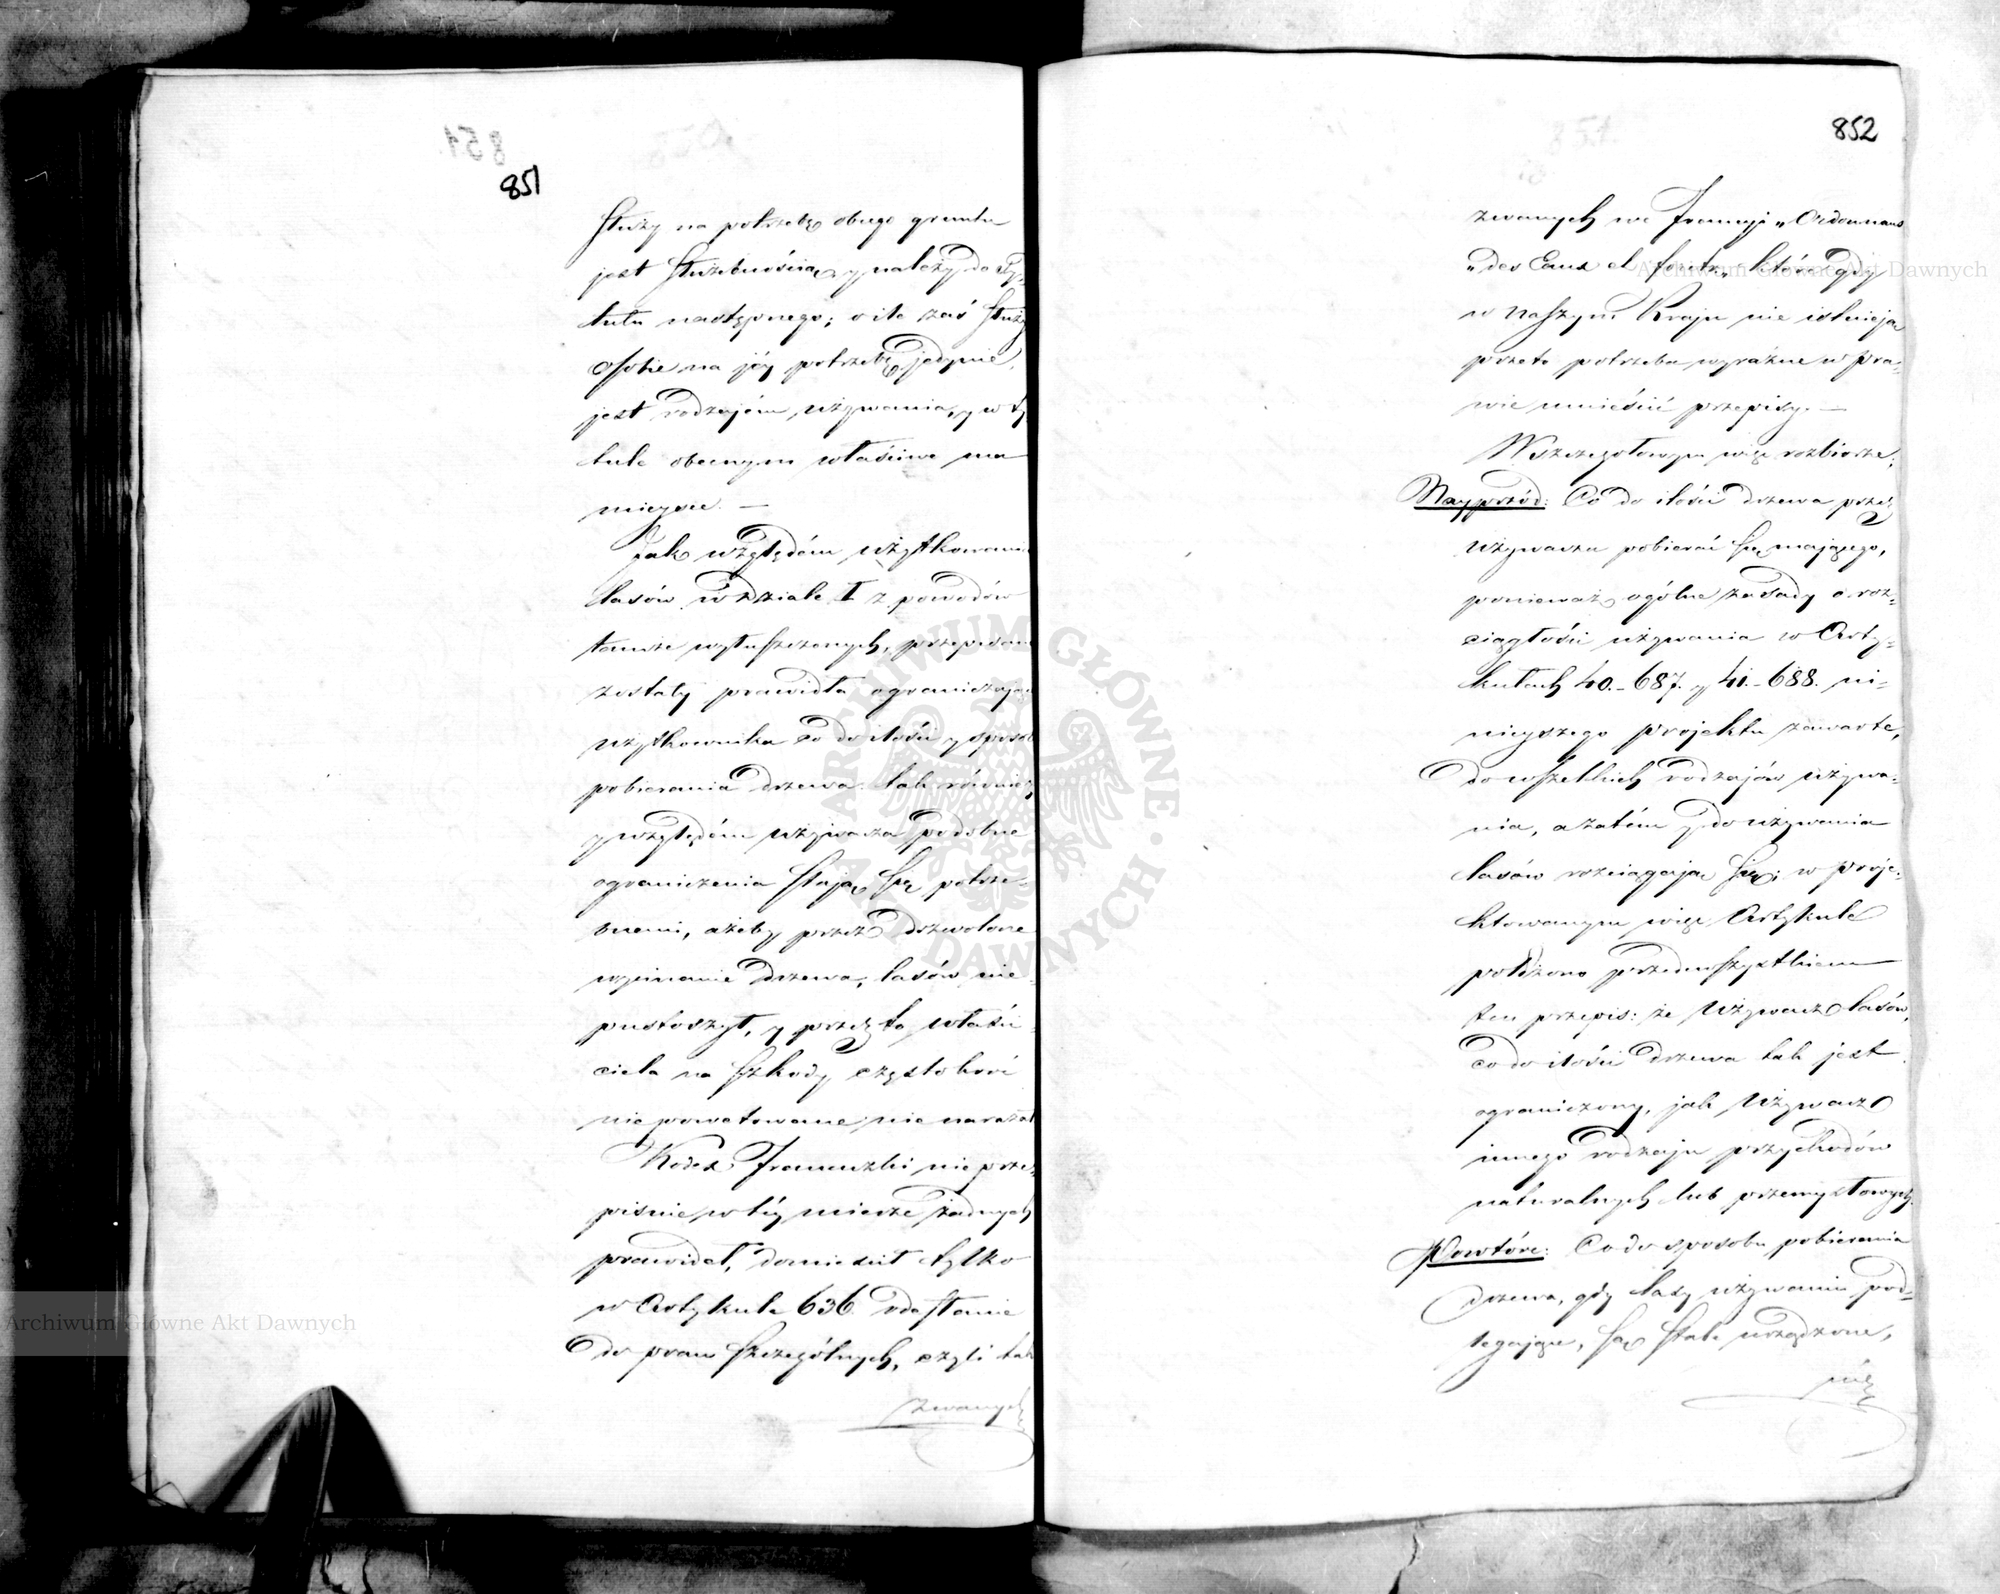 851
służy na potrzebę obcego gruntu
jest służebnością, y należy do Ty-
tułu następnego; o ile zaś służy
osobie na jéy potrzebę jedynie,
jest rodzajem używania, y w ty
tule obecnym właściwe ma
mieysce. —
Jak względém użytkowania
lasów w dziale I z powodów
tamże wyłuszczonych, przepisane
zostały prawidła ograniczające
użytkownika co do ilości y sposobu
pobierania drzewa tak również
y względém używacza podobne
ograniczenia stają się potrze-
bnemi, ażeby przez dozwolone
wycinanie drzewa, lasów nie
pustoszył, y przez to właści-
ciela na szkody częstokroć
niepowetowane nie narażał
Kodex Francuzki nie prze-
pisuie w téy mierze żadnych
prawideł, domieścił tylko
w Artykule 636 odesłanie
do praw szczególnych, czyli tak
zwanych
852
zwanych we Francyi „Ordonnans
„des Eaux et forets„ które gdy
w naszym Kraju nie istnieją
przeto potrzeba wyraźne w pra-
wie umieścić przepisy. —
W szczegółowym więc rozbiorze;
Nayprzód: Co do ilości drzewa przez
używacza pobierać się mającego,
ponieważ ogólne zasady o roz-
ciągłości używania w Arty-
kułach 40.-687. y 41.-688. ni-
nieyszego projektu zawarte,
do wszelkich rodzajów używa-
nia, a zatém y do używania
lasów rozciągają się; w proje-
ktowanym więc Artykule
położono przedewszystkiem
ten przepis: że Używacz lasów,
co do ilości drzewa tak jest
ograniczony, jak Używacz
innego rodzaju przychodów
naturalnych lub przemysłowych.
Powtóre: Co do sposobu pobierania
drzewa, gdy lasy używaniu pod-
legające, są stale urządzone,
Archiwum Główne Akt Dawnych
Archiwum Główne Akt Dawnych
ARCHIWUM GŁÓWNE AKT DAWNYCH